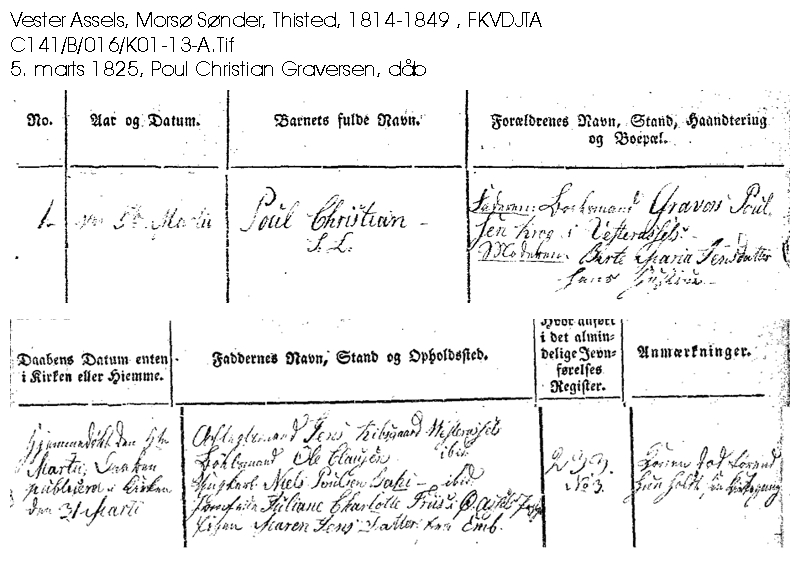 Vester Assels, Morsø Sønder, Thisted, 1814-1849 , FKVDJTA
C141/B/016/K01-13-A.Tif
5. marts 1825, Poul Christian Graversen, dåb
No.
Aar og Datum.
Barnets fulde Navn.
Forældrenes Navn, Stand, Haandtering
og Boepæl.
1-
5te Martii
Poul Christian -
S. L.
Faderen: Boelsmand Graves Poul-
sen Krog i Vesterassels
Moderen: Birte Maria Jensdatter
hans Hustrue -
Daabens Datum enten
i Kirken eller Hiemme.
Faddernes Navn, Stand og Opholdssted.
Hvor anført
i det almin-
delige Jevn-
førelses
Register.
Anmærkninger.
Hjemmedøbt den
Martii, Daaben
publiceret i Kirken
den 31 Marti
Aftægtsmand Jens Kibsgaard Vesterassels
Boelsmand Ole Clausen ibid.
Ungkarl Niels Poulsen - ibid
Jomfrue Juliane Charlotte Friis i
Pigen Maren Jens Datter fra
233.
No 3.